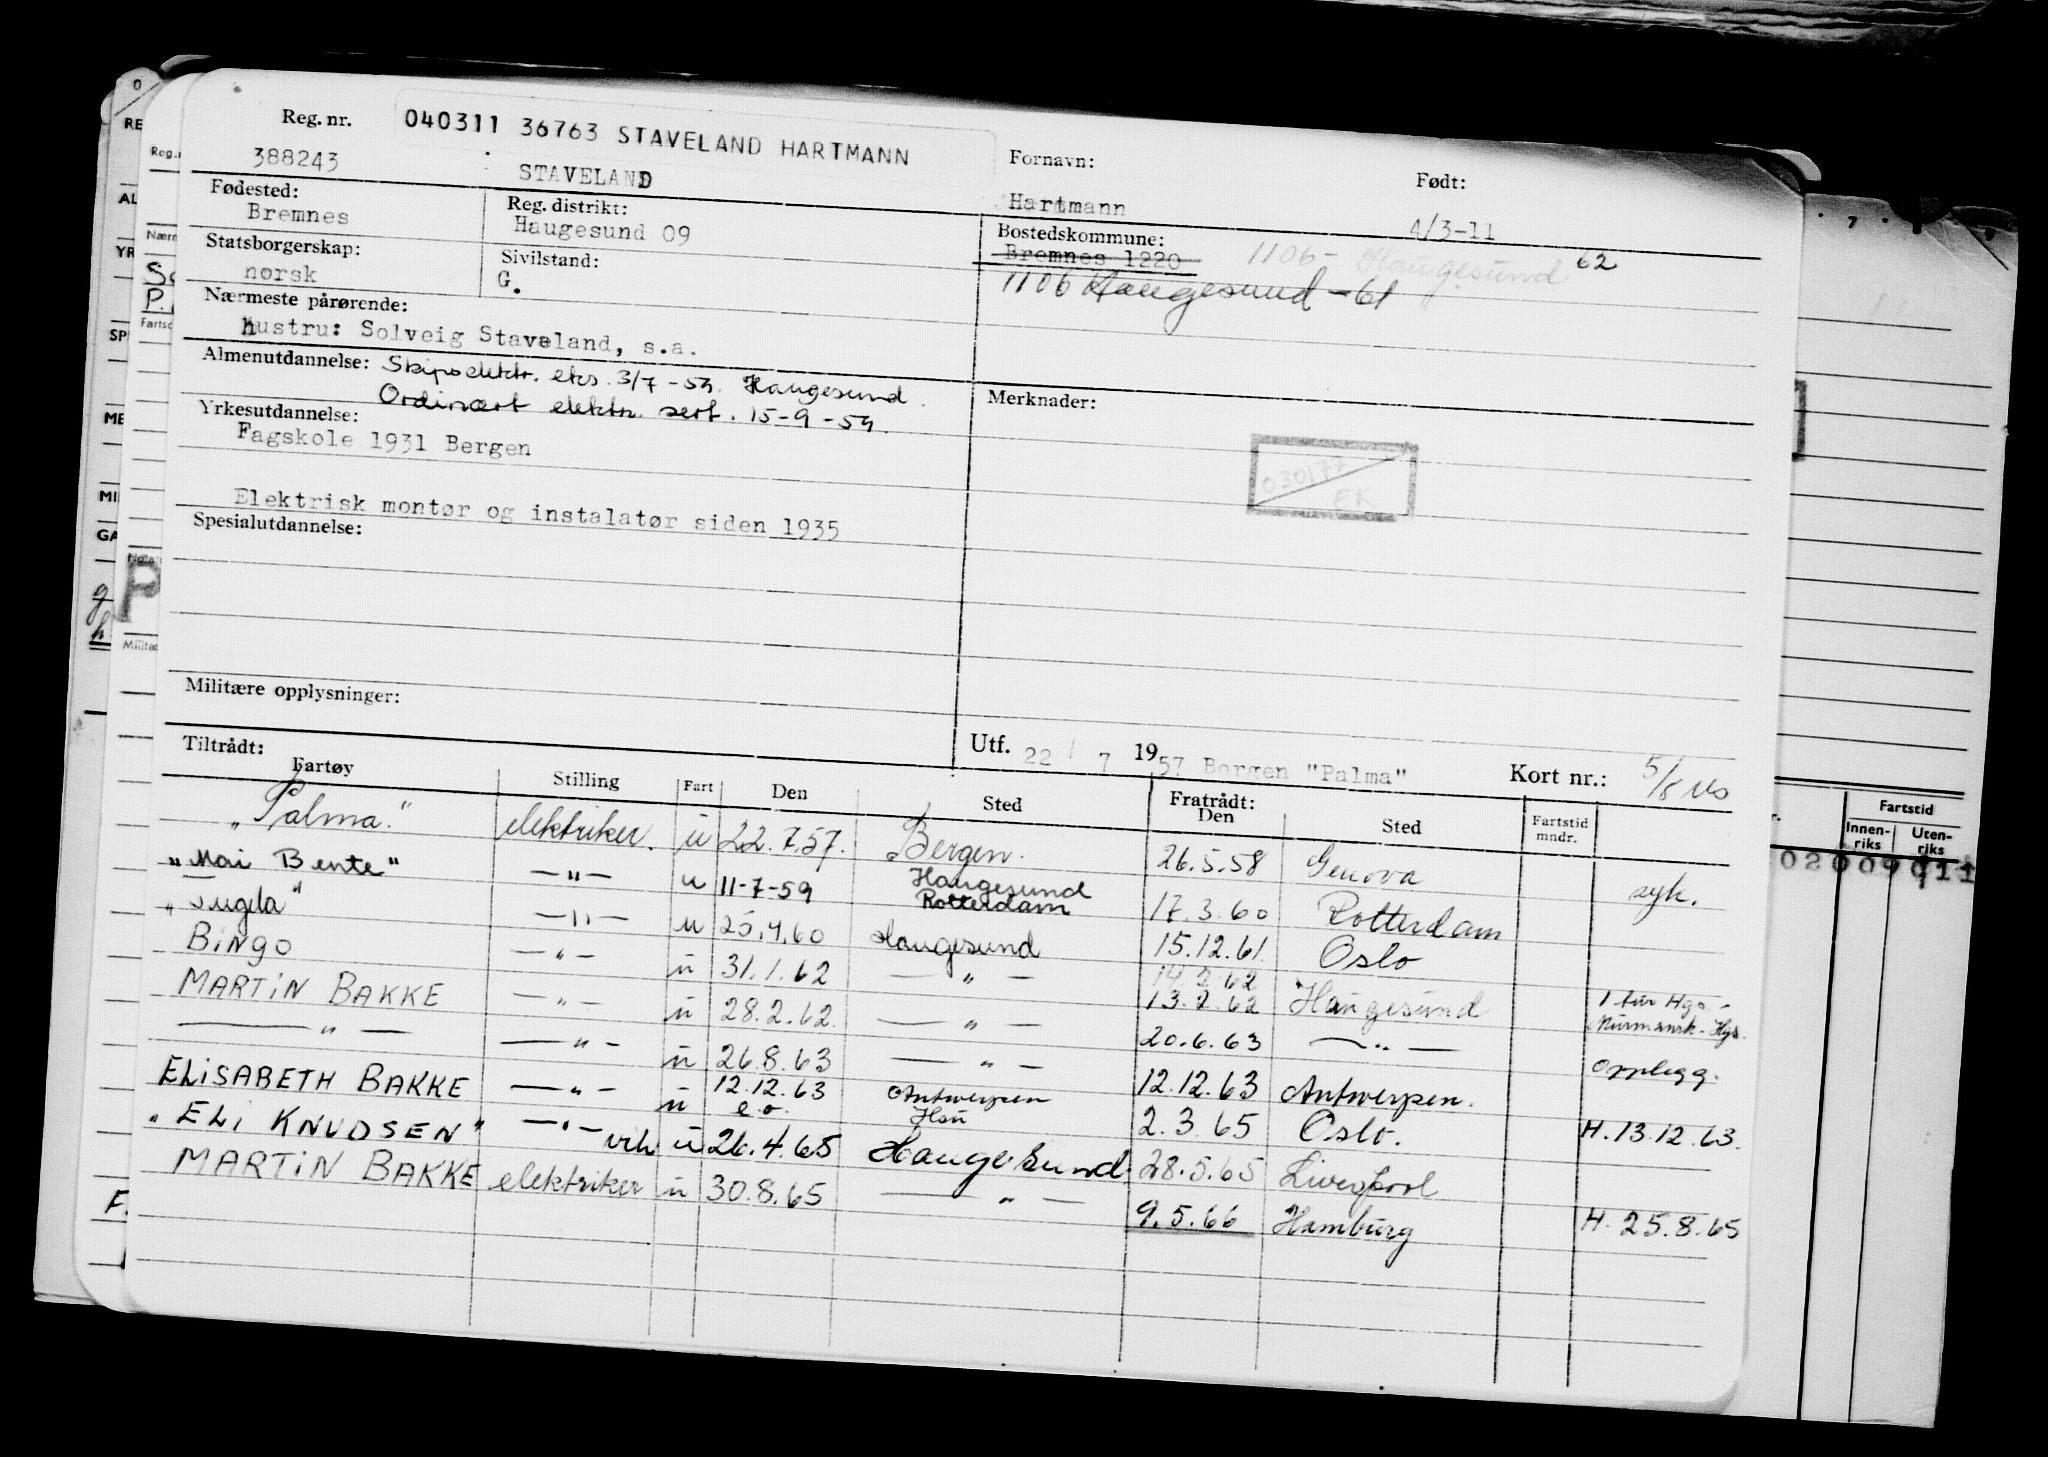 Reg. nr. 040311 36763 STAVELAND HARTMANN
388243 STAVELAND
Fornavn: Hartmann
Født: 4/3-11
Fødested: Bremnes
Reg. distrikt: Haugesund 09
Bostedskommune: Bremnes 1220
1106 - Haugesund 62
1106 Haugesund -61
Statsborgerskap: norsk
Sivilstand: G.
Nærmeste pårørende:
Hustru: Solveig Staveland, s.a.
Almenutdannelse: Skipselektr. eks. 3/7-59. Haugesund.
Ordinært elektr. sert. 15-9-59.
Merknader:
030177
EK
Yrkesutdannelse:
Fagskole 1931 Bergen
Elektrisk montør og instalatør siden 1935
Spesialutdannelse:
Militære opplysninger:
Utf. 22 / 7 1957 Bergen "Palma" Kort nr.:
Tiltrådt:
Fartøy Stilling Fart Den Sted Fratrådt: Den Sted Fartstid mndr.
"Palma." elektriker. u 22.7.57. Bergen. 26.5.58 Genova syk.
"Mai Bente" —"— u 11-7-59 Haugesund Rotterdam 17.3.60 Rotterdam
—"— u 25.4.60 Haugesund 15.12.61. Oslo
BINGO —"— u 31.1.62 —"— 14.2.62
13.2.62 Haugesund 1 tur Hgs.-
Murmansk-Hgs.
MARTIN BAKKE —"— u 28.2.62. —"— 20.6.63 —"— Opplegg.
—"— —"— u 26.8.63 —"— 12.12.63 Antwerpen. H. 13.12.63.
ELISABETH BAKKE —"— u 12.12.63 Antwerpen 2.3.65 Oslo.
e.o. Hsu
"ELI KNUDSEN" —"— vik u 26.4.65 Haugesund 28.5.65 Liverpool
MARTIN BAKKE elektriker u 30.8.65 —"— 9.5.66 Hamburg H. 25.8.65
Fartstid
Innen-riks Uten-riks